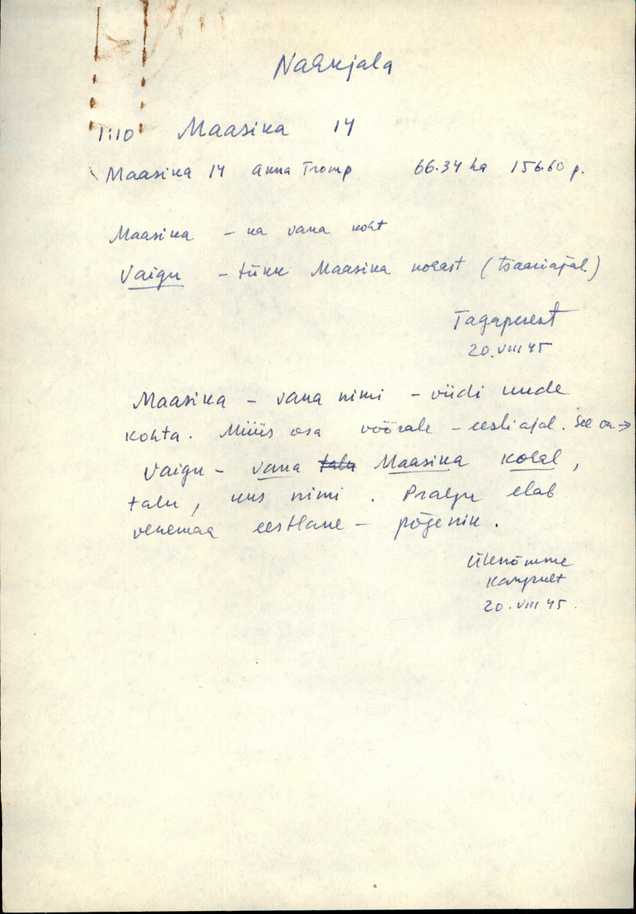 Nakkjala
1:10 Maasika 14
Maasika 14 Anna Tromp 66.34 ha 156.60 p.
Maasika – ka vana koht
Vaigu – tükk Maasika kohast (tsaariajal)
Tagaperest
20.VIII 45
Maasika – vana nimi – viidi uude
kohta. Müüs osa võõrale – eesti ajal. See on →
Vaigu – vana talu Maasika kohal,
talu, uus nimi. Praegu elab
venemaa eestlane – põgenik.
Ülenõmme
20.VIII 45.